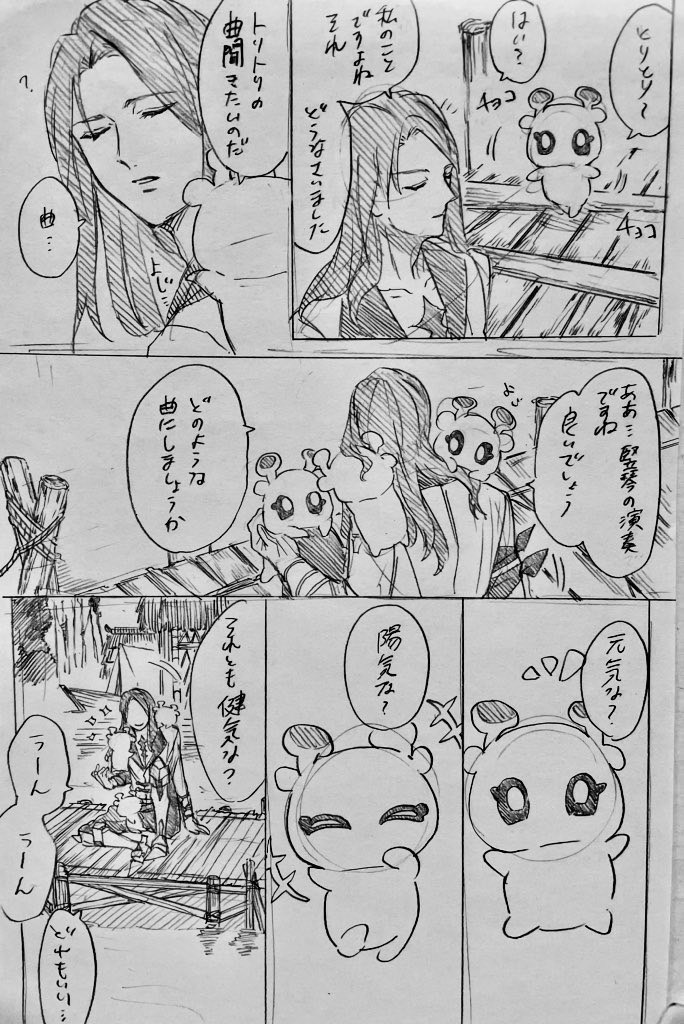 とりとり〜
はい?
チョコ
チョコ
私のこと
ですよね
それ
どうなさいました
トリトリの
曲聞
きたいのだ
?
曲…
よじ
ああ…竪琴の演奏
ですね
良いでしょう
よじ
どのような
曲にしましょうか
元気な?
陽気な?
それとも健気な?
うーん
うーん
どれもいい…